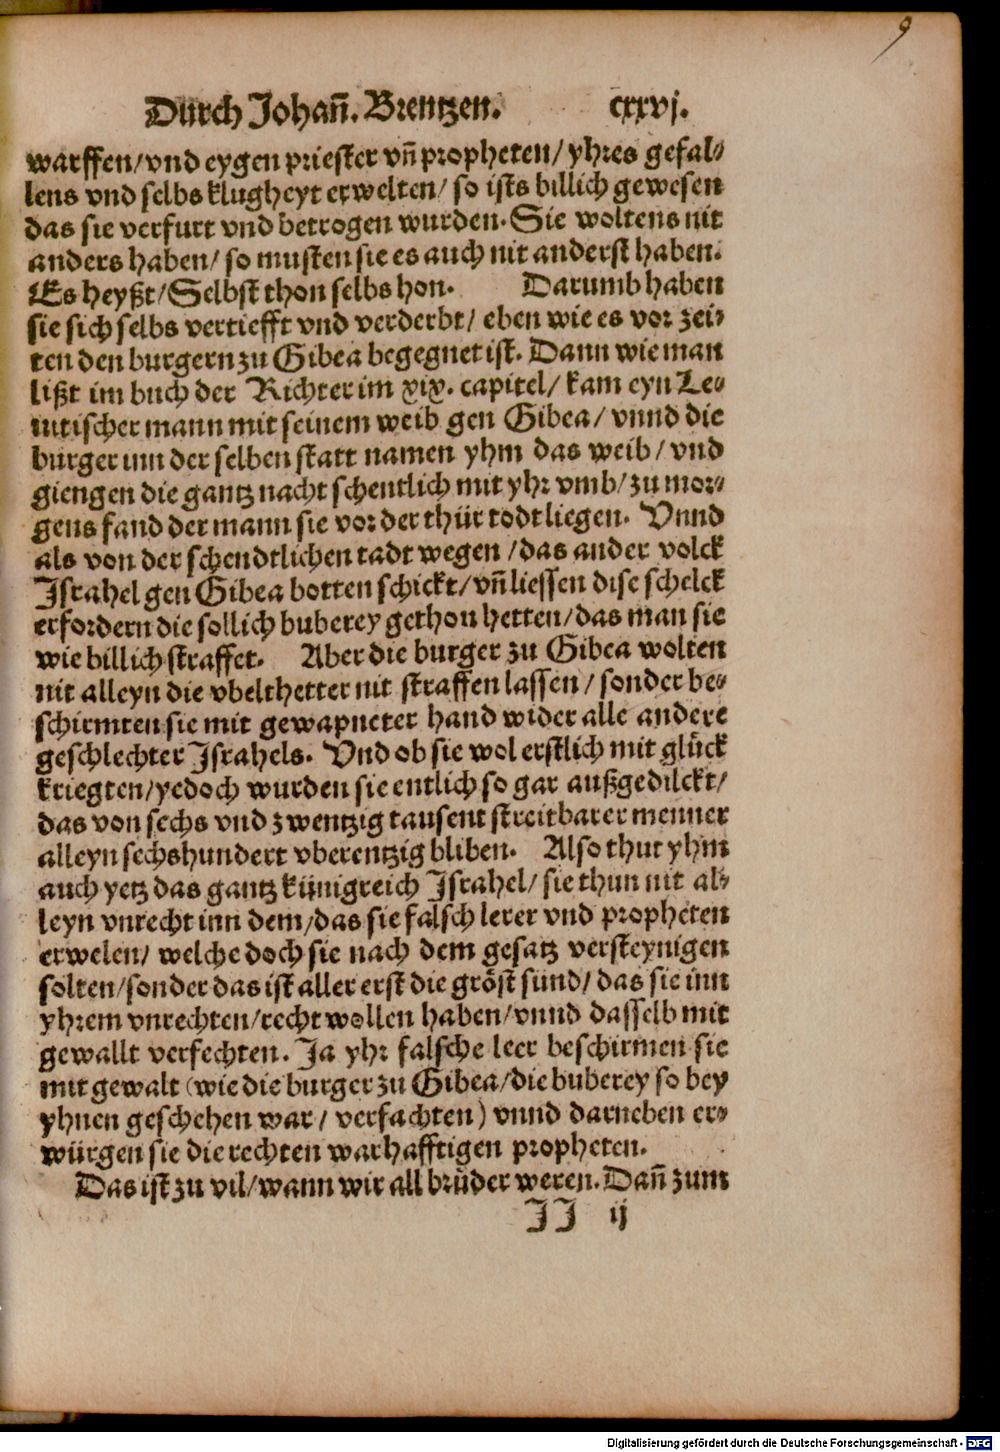 9
Durch Johañ. Brentzen. cxxvj.
warffen/vnd eygen priester vñ propheten/ yhres gefal⸗
lens vnd selbs klugheyt erwelten/ so ists billich gewesen
das sie verfurt vnd betrogen wurden. Sie woltens nit
anders haben/ so musten sie es auch nit anderst haben.
Es heyßt/Selbst thon selbs hon. Darumb haben
sie sich selbs vertiefft vnd verderbt/ eben wie es vor zei⸗
ten den burgern zu Gibea begegnet ist. Dann wie man
lißt im buch der Richter im xix. capitel/ kam eyn Le⸗
uitischer mann mit seinem weib gen Gibea/ vnnd die
burger inn der selben statt namen yhm das weib/ vnd
giengen die gantz nacht schentlich mit yhr vmb/ zu mor⸗
gens fand der mann sie vor der thür todt liegen. Vnnd
als von der schendtlichen tadt wegen /das ander volck
Israhel gen Gibea botten schickt/ vñ liessen dise schelck
erfordern die sollich buberey gethon hetten/das man sie
wie billich straffet. Aber die burger zu Gibea wolten
nit alleyn die vbelthetter nit straffen lassen/ sonder be⸗
schirmten sie mit gewapneter hand wider alle andere
geschlechter Israhels. Vnd ob sie wol erstlich mit glück
kriegten/yedoch wurden sie entlich so gar außgedilckt/
das von sechs vnd zwentzig tausent streitbarer menner
alleyn sechshundert vberentzig bliben. Also thut yhm
auch yetz das gantz künigreich Israhel/ sie thun nit al⸗
leyn vnrecht inn dem/das sie falsch lerer vnd propheten
erwelen/ welche doch sie nach dem gesatz versteynigen
solten/sonder das ist aller erst die gröst sund/ das sie inn
yhrem vnrechten/recht wollen haben/vnnd dasselb mit
gewallt verfechten. Ja yhr falsche leer beschirmen sie
mit gewalt (wie die burger zu Gibea/die buberey so bey
yhnen geschehen war/ verfachten) vnnd darneben er⸗
würgen sie die rechten warhafftigen propheten.
Das ist zu vil/wann wir all brüder weren. Dañ zum
JJ ij
Digitalisierung gefördert durch die Deutsche Forschungsgemeinschaft - DFG